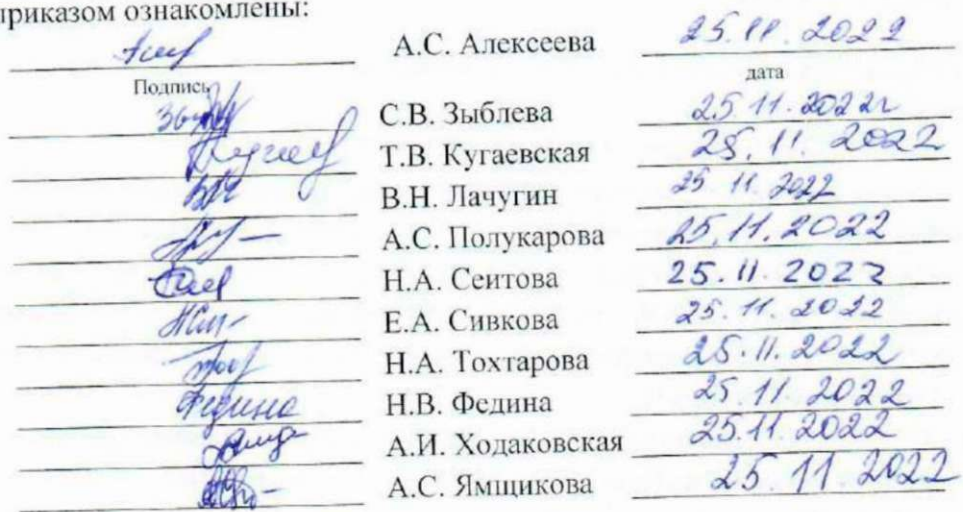 приказом ознакомлены:
А.С. Алексеева 25.11.2022
Подпись дата
С.В. Зыблева 25.11.2022г
Т.В. Кугаевская 25.11.2022
В.Н. Лачугин 25 11.2022
А.С. Полукарова 25.11.2022
Н.А. Сеитова 25.11.2022
Е.А. Сивкова 25.11.2022
Н.А. Тохтарова 25.11.2022
Федина Н.В. Федина 25.11.2022
А.И. Ходаковская 25.11.2022
А.С. Ямщикова 25.11.2022